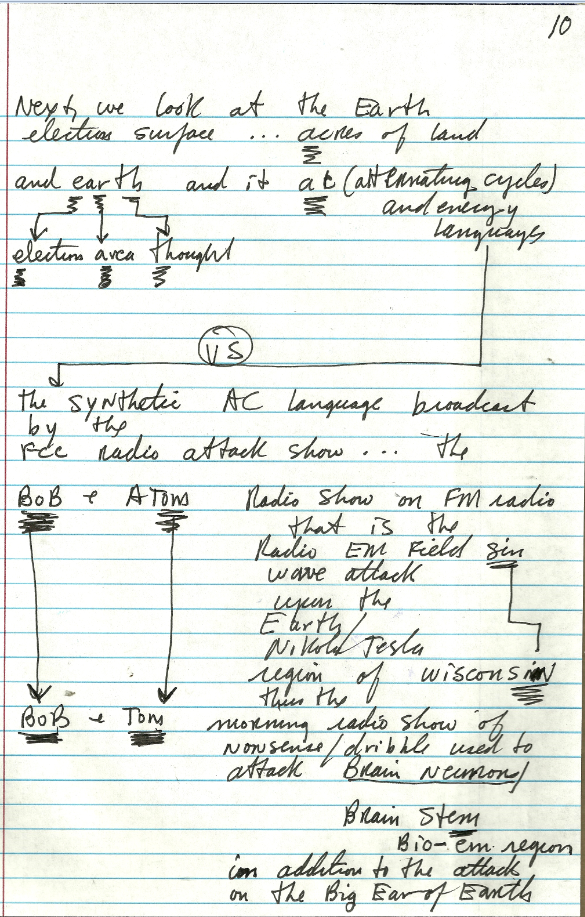 10
Next, we look at the Earth
election surface ... acres of land
and earth and it ac (alternating cycles)
and energy
languages
election area thought
VS
the synthetic AC language broadcast
by the
FCC radio attack show ... the
BoB + ATom Radio Show on FM radio
that is the
Radio EM Field sin
wave attack
upon the
Earth/
Nikola/Tesla
region of wisconsin
thus the
BoB + Tom morning radio show of
nonsense/dribble used to
attack Brain Neurons/
Brain Stem
Bio-em region
in addition to the attack
on the Big Ear of Earth